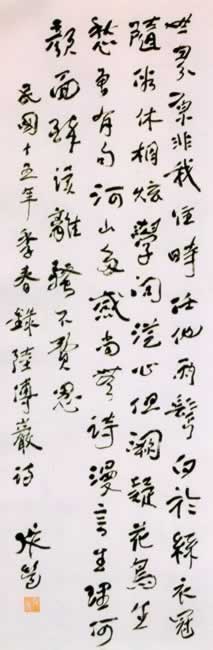 世界原非我住時任他兩鬢白於絲衣冠
隨俗休相炫學問從心但闕疑花鳥生
愁更有句河山多感尚無詩漫言生理何
顏面熟讀離騷不費思
民國十五年季春錄陸傅巖詩
張